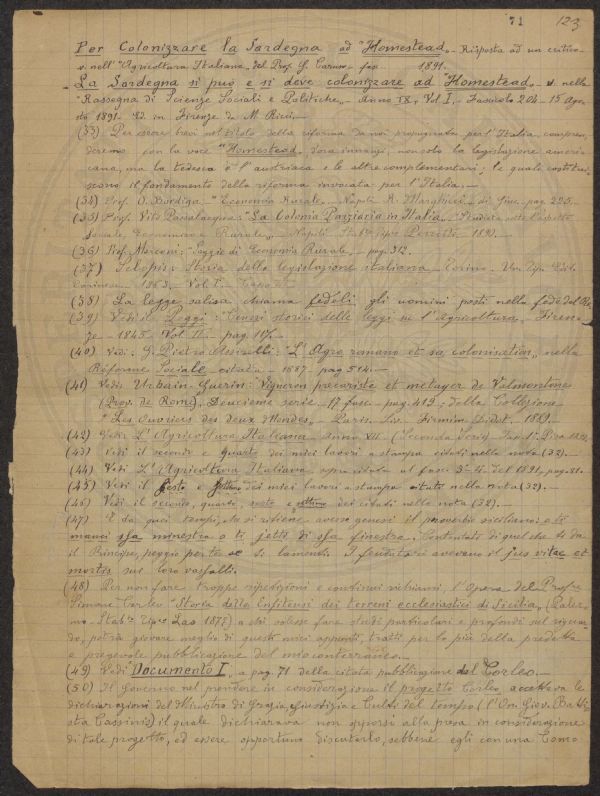 71 123
Per Colonizzare la Sardegna ad "Homestead" - Risposta ad un critico -
v. nell' "Agricoltura Italiana" del Prof. G. Caruso - fas 1891. -
- La Sardegna si può e si deve colonizzare ad "Homestead" - v. nella
"Rassegna di Scienze Sociali e Politiche" - Anno IX, Vol I. - Fascicolo 204 - 15 Ago
sto 1891 - 82 in Firenze da M. Ricci. -
(33) Per essere brevi nel titolo della riforma da noi propugnata per l'Italia, compren
deremo con la voce "Homestead" d'ora innanzi, non solo la legislazione ameri
cana, ma la tedesca e l'austriaca e le altre complementari; le quali costitui
scono il fondamento della riforma invocata per l'Italia. -
(34) Prof. O. Bordiga - "Economia Rurale" - Napoli R. Marghieri - di Gius. pag 225. -
(35) Prof. Vito Passalacqua: "La Colonia Parziaria in Italia" - Studiata sotto l'aspetto
Sociale, Economico e Rurale" - Napoli Stab. tipo 1890. -
(36) Prof. Marconi: "Saggio di Economia Rurale" - pag. 312.
(37) Sclopis: Storia della legislazione italiana - Torino - Un. Tip. Edit.
1863. Vol I -
(38) La legge salica chiama fedeli gli uomini posti nella fede del Re
(39) Vedi il Poggi: "Cenni storici delle leggi su l'Agricoltura" - Firen
ze - 1845 - Vol II - pag.
(40) Vedi: G. Pietro "L'Agro romano et sa colonisation" nella
Réforme Sociale citata - 1887 - pag 514. -
(41) Vedi Urbain-Guerin: Vigneron précariste et metayer de Valmontone
(Prov. de Rome). Deuxieme serie - fasc. - pag. 413; della Collezione
"Les Ouvriers des deux Mondes" - Paris. Liv. Firmin Didot. 1889. -
(42) Vedi L'Agricoltura Italiana - Anno VII - (Seconda Serie)
(43) Vedi il secondo e quarto dei miei lavori a stampa citati nella nota (32). -
(44) Vedi L'Agricoltura Italiana, sopra citata al fasc. 3-4 del 1891, pag. 81. -
(45) Vedi il sesto e settimo dei miei lavori a stampa citati nella nota (32). -
(46) Vedi il secondo, quarto, sesto e ultimo dei citati nella nota (32). -
(47) È da quei tempi, che si ritiene avesse genesi il proverbio siciliano: o ti
manci sta minestra o ti jetti di sta finestra. Contentati di quel che ti dà
il Principe, peggio per te se ti lamenti. I feudatari avevano il jus vitae et
mortis sui loro vassalli. -
(48) Per non fare troppe ripetizioni e continui richiami, l'Opera del Profre
Simone Corleo "Storia della Enfiteusi dei terreni ecclesiastici di Sicilia" (Paler
mo - Stabto Tipco Lao 1871) a chi volesse fare studi particolari e profondi sul riguar
do, potrà giovare meglio di questi miei appunti, tratti per lo più della predetta
e pregevole pubblicazione del mio conterraneo. -
(49) Vedi "Documento I" a pag. 71 della citata pubblicazione del Corleo. -
(50) Il Governo nel prendere in considerazione il progetto Corleo, accettava le
dichiarazioni del Ministro di Grazia, Giustizia e Culti del tempo (l'On. Giov. Batti
sta Cassinis) il quale dichiarava non opporsi alla presa in considerazione
di tale progetto, ed essere opportuno discuterlo, sebbene egli con una Com=